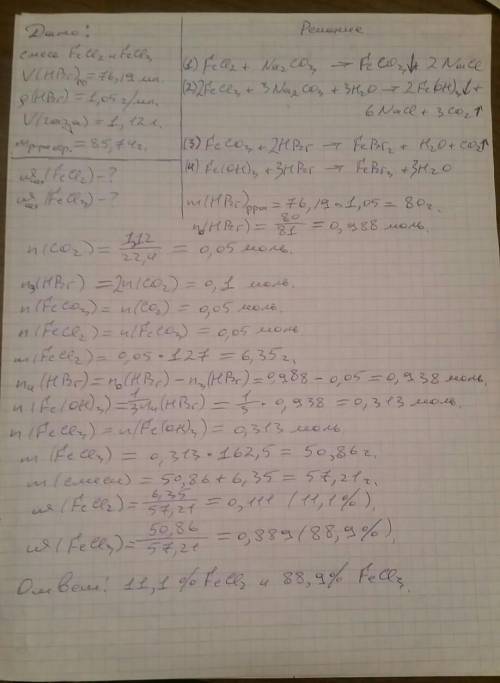 Дано:
смесь FeCl₂ и FeCl₃
V(HBr) = 76,19 мл.
ρ(HBr) = 1,05 г/мл.
V(газа) = 1,12 л.
= 85,74 г.
(FeCl₂) - ?
(FeCl₃) - ?
Решение
(1) FeCl₂ + Na₂CO₃ → FeCO₃↓ + 2 NaCl
(2) 2FeCl₃ + 3Na₂CO₃ + 3H₂O → 2Fe(OH)₃↓ +
6NaCl + 3CO₂↑
(3) FeCO₃ + 2HBr → FeBr₂ + H₂O + CO₂↑
(4) Fe(OH)₃ + 3HBr → FeBr₃ + 3H₂O
m(HBr) = 76,19 · 1,05 = 80 г.
n₀(HBr) = 80/81 = 0,988 моль.
n(CO₂) = 1,12/22,4 = 0,05 моль.
n₃(HBr) = 2n(CO₂) = 0,1 моль.
n(FeCO₃) = n(CO₂) = 0,05 моль.
n(FeCl₂) = n(FeCO₃) = 0,05 моль
m(FeCl₂) = 0,05 · 127 = 6,35 г.
n₄(HBr) = n₀(HBr) - n₃(HBr) = 0,988 - 0,05 = 0,938 моль.
n(Fe(OH)₃) = 1/3 n₄(HBr) = 1/3 · 0,938 = 0,313 моль.
n(FeCl₃) = n(Fe(OH)₃) = 0,313 моль.
m(FeCl₃) = 0,313 · 162,5 = 50,86 г.
m(смеси) = 50,86 + 6,35 = 57,21 г.
ω(FeCl₂) = 6,35/57,21 = 0,111 (11,1%).
ω(FeCl₃) = 50,86/57,21 = 0,889 (88,9%).
Ответ: 11,1% FeCl₂ и 88,9% FeCl₃.